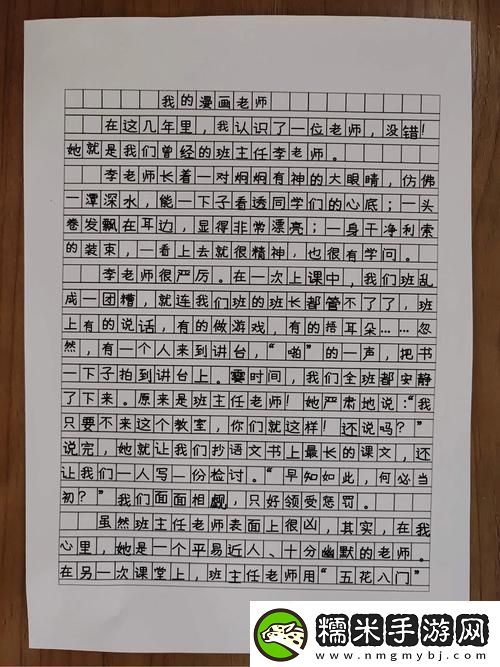 我的漫画老师
在这几年里，我认识了一位老师，没错！
她就是我们曾经的班主任李老师。
李老师长着一对炯炯有神的大眼睛，仿佛
一潭深水，能一下子看透同学们的心底；一头
卷发飘在耳边，显得非常漂亮；一身干净利索
的装束，一看上去就很精神，也很有学问。
李老师很严厉。在一次上课中，我们班乱
成一团糟，就连我们班的班长都管不了了，班
上有的说话，有的做游戏，有的捂耳朵……忽
然，有一个人来到讲台，“啪”的一声，把书
一下子拍到讲台上。霎时间，我们全班都安静
了下来。原来是班主任老师！她严肃地说：“我
只要不来这个教室，你们就这样！还说吗？”
说完，她就让我们抄语文书上最长的课文，还
让我们一人写一份检讨。“早知如此，何必当
初？”我们面面相觑，只好领受惩罚。
虽然班主任老师表面上很凶，其实，在我
心里，她是一个平易近人、十分幽默的老师。
在另一次课堂上，班主任老师用“五花八门”
糯米手游网
www.nmgmybj.com